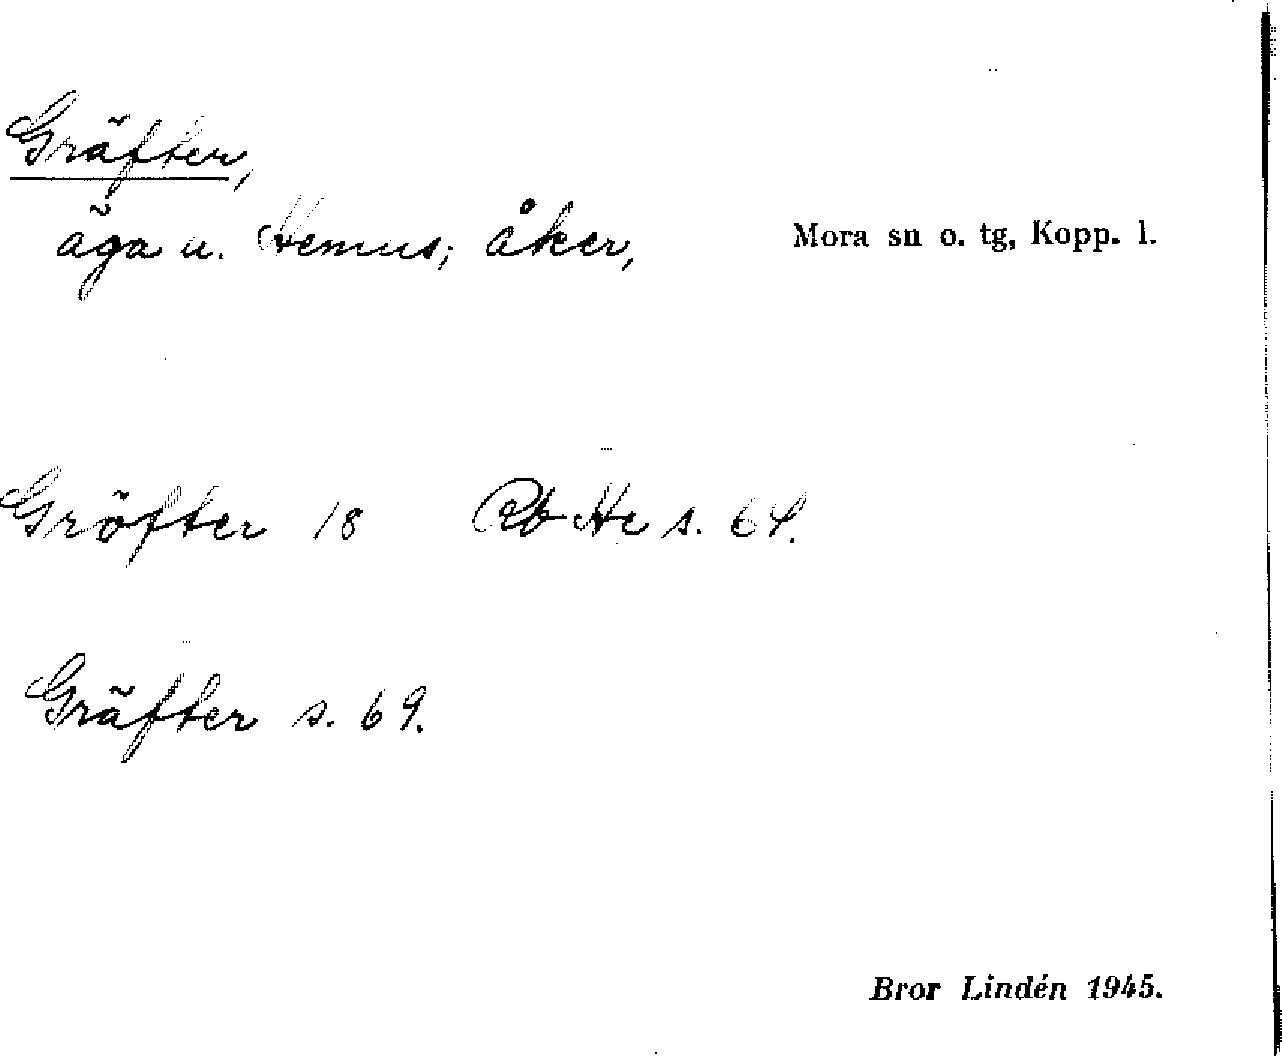 Gräfter,
äga u. Hemus; åker,
Mora sn o. tg, Kopp. l.
Gröfter 18 Rb He s. 64.
Gräfter s. 69.
Bror Lindén 1945.